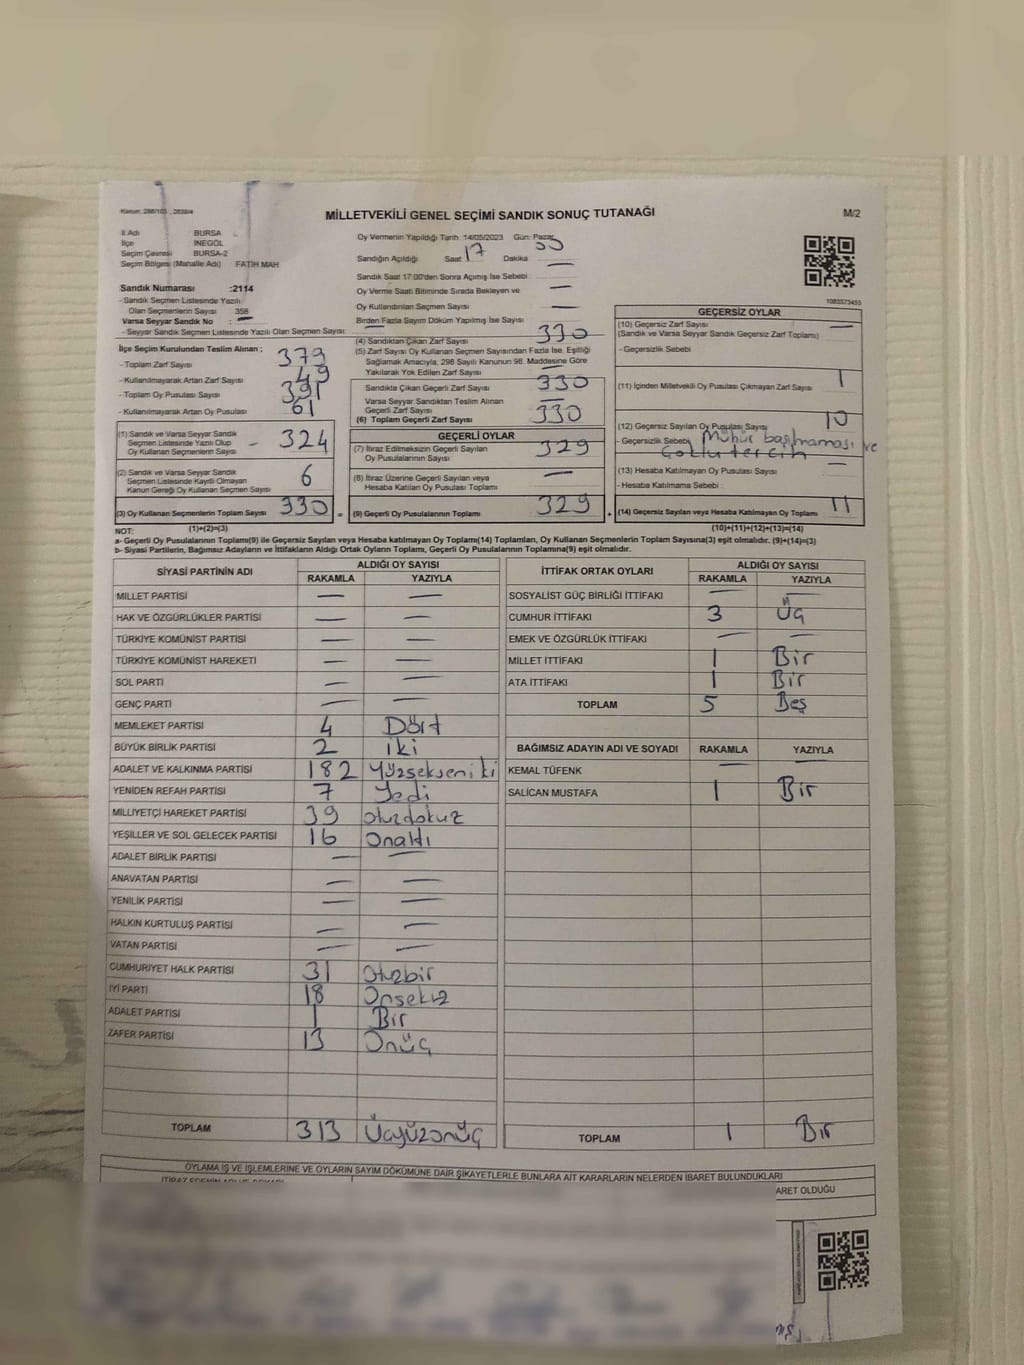 Kanun: 298/103 , 2839/4
MİLLETVEKİLİ GENEL SEÇİMİ SANDIK SONUÇ TUTANAĞI
M/2
İl Adı BURSA
İlçe İNEGÖL
Seçim Çevresi BURSA-2
Seçim Bölgesi (Mahalle Adı) FATİH MAH
Sandık Numarası :2114
- Sandık Seçmen Listesinde Yazılı
Olan Seçmenlerin Sayısı 358
Varsa Seyyar Sandık No : —
- Seyyar Sandık Seçmen Listesinde Yazılı Olan Seçmen Sayısı: —
Oy Vermenin Yapıldığı Tarih: 14/05/2023 Gün: Pazar
Sandığın Açıldığı Saat 17 Dakika
Sandık Saat 17:00'den Sonra Açılmış İse Sebebi —
Oy Verme Saati Bitiminde Sırada Bekleyen ve —
Oy Kullandırılan Seçmen Sayısı —
Birden Fazla Sayım Döküm Yapılmış İse Sayısı —
1083573455
İlçe Seçim Kurulundan Teslim Alınan ;
- Toplam Zarf Sayısı 379
- Kullanılmayarak Artan Zarf Sayısı 49
- Toplam Oy Pusulası Sayısı 391
- Kullanılmayarak Artan Oy Pusulası 61
(1) Sandık ve Varsa Seyyar Sandık
Seçmen Listesinde Yazılı Olup
Oy Kullanan Seçmenlerin Sayısı - 324
(2) Sandık ve Varsa Seyyar Sandık
Seçmen Listesinde Kayıtlı Olmayan
Kanun Gereği Oy Kullanan Seçmen Sayısı 6
(3) Oy Kullanan Seçmenlerin Toplam Sayısı 330 =
(4) Sandıktan Çıkan Zarf Sayısı 330
(5) Zarf Sayısı Oy Kullanan Seçmen Sayısından Fazla İse, Eşitliği
Sağlamak Amacıyla, 298 Sayılı Kanunun 98. Maddesine Göre
Yakılarak Yok Edilen Zarf Sayısı —
Sandıkta Çıkan Geçerli Zarf Sayısı 330
Varsa Seyyar Sandıktan Teslim Alınan
Geçerli Zarf Sayısı —
(6) Toplam Geçerli Zarf Sayısı 330
GEÇERLİ OYLAR
(7) İtiraz Edilmeksizin Geçerli Sayılan
Oy Pusulalarının Sayısı 329
(8) İtiraz Üzerine Geçerli Sayılan veya
Hesaba Katılan Oy Pusulası Toplamı —
(9) Geçerli Oy Pusulalarının Toplamı 329 +
GEÇERSİZ OYLAR
(10) Geçersiz Zarf Sayısı —
(Sandık ve Varsa Seyyar Sandık Geçersiz Zarf Toplamı)
- Geçersizlik Sebebi
(11) İçinden Milletvekili Oy Pusulası Çıkmayan Zarf Sayısı 1
(12) Geçersiz Sayılan Oy Pusulası Sayısı 10
- Geçersizlik Sebebi Mühür basılmaması ve
Çoklu tercih
(13) Hesaba Katılmayan Oy Pusulası Sayısı —
- Hesaba Katılmama Sebebi :
(14) Geçersiz Sayılan veya Hesaba Katılmayan Oy Toplamı 11
NOT: (1)+(2)=(3) (10)+(11)+(12)+(13)=(14)
a- Geçerli Oy Pusulalarının Toplamı(9) ile Geçersiz Sayılan veya Hesaba katılmayan Oy Toplamı(14) Toplamları, Oy Kullanan Seçmenlerin Toplam Sayısına(3) eşit olmalıdır. (9)+(14)=(3)
b- Siyasi Partilerin, Bağımsız Adayların ve İttifakların Aldığı Ortak Oyların Toplamı, Geçerli Oy Pusulalarının Toplamına(9) eşit olmalıdır.
SİYASİ PARTİNİN ADI ALDIĞI OY SAYISI
RAKAMLA YAZIYLA
MİLLET PARTİSİ — —
HAK VE ÖZGÜRLÜKLER PARTİSİ — —
TÜRKİYE KOMÜNİST PARTİSİ — —
TÜRKİYE KOMÜNİST HAREKETİ — —
SOL PARTİ — —
GENÇ PARTİ — —
MEMLEKET PARTİSİ 4 Dört
BÜYÜK BİRLİK PARTİSİ 2 iki
ADALET VE KALKINMA PARTİSİ 182 Yüzsekseniki
YENİDEN REFAH PARTİSİ 7 Yedi
MİLLİYETÇİ HAREKET PARTİSİ 39 otuzdokuz
YEŞİLLER VE SOL GELECEK PARTİSİ 16 Onaltı
ADALET BİRLİK PARTİSİ — —
ANAVATAN PARTİSİ — —
YENİLİK PARTİSİ — —
HALKIN KURTULUŞ PARTİSİ — —
VATAN PARTİSİ — —
CUMHURİYET HALK PARTİSİ 31 Otuzbir
İYİ PARTİ 18 Onsekiz
ADALET PARTİSİ 1 Bir
ZAFER PARTİSİ 13 Onüç
TOPLAM 313 Üçyüzonüç
İTTİFAK ORTAK OYLARI ALDIĞI OY SAYISI
RAKAMLA YAZIYLA
SOSYALİST GÜÇ BİRLİĞİ İTTİFAKI — —
CUMHUR İTTİFAKI 3 Üç
EMEK VE ÖZGÜRLÜK İTTİFAKI — —
MİLLET İTTİFAKI 1 Bir
ATA İTTİFAKI 1 Bir
TOPLAM 5 Beş
BAĞIMSIZ ADAYIN ADI VE SOYADI RAKAMLA YAZIYLA
KEMAL TÜFENK — —
SALİCAN MUSTAFA 1 Bir
TOPLAM 1 Bir
OYLAMA İŞ VE İŞLEMLERİNE VE OYLARIN SAYIM DÖKÜMÜNE DAİR ŞİKAYETLERLE BUNLARA AİT KARARLARIN NELERDEN İBARET BULUNDUKLARI
ARET OLDUĞU